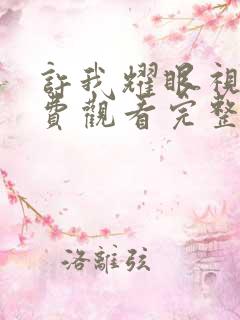 許我耀眼視
費觀看完整
洛離弦